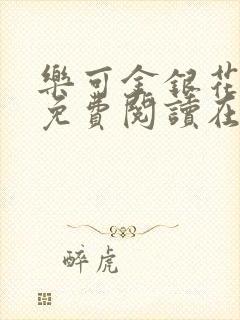 樂可金銀花
免費閱讀在
醉虎